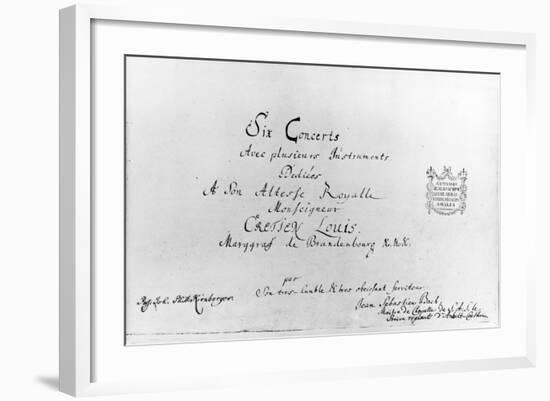 Six Concerts
Avec plusieurs Instruments.
Dediées
A Son Altesse Royalle
Monseigneur
CRETIEN Louis.
Marggraf de Brandenbourg &c.&c.&c.
par
Son tres-humble & tres obeissant serviteur
Jean Sebastien Bach,
Maitre de Chapelle de S.A.S. le
Prince regnant d'Anhalt-Coethen.
Kirnberger.
AMALIA